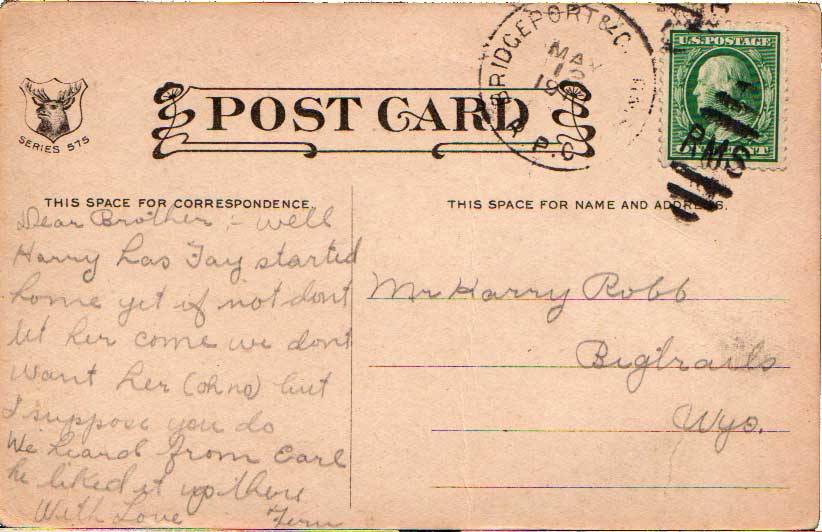 BRIDGEPORT & C
MAY
19
R.P.O.
U.S. POSTAGE
RMS
POST CARD
SERIES 575
THIS SPACE FOR CORRESPONDENCE.
THIS SPACE FOR NAME AND ADDRESS.
Dear Brother:- well
Harry has Fay started
home yet if not dont
let her come we dont
want her (oh no) but
I suppose you do
We heard from Earl
he liked it up there
With Love Fern
Mr Harry Robb
Bigtrails
Wyo.